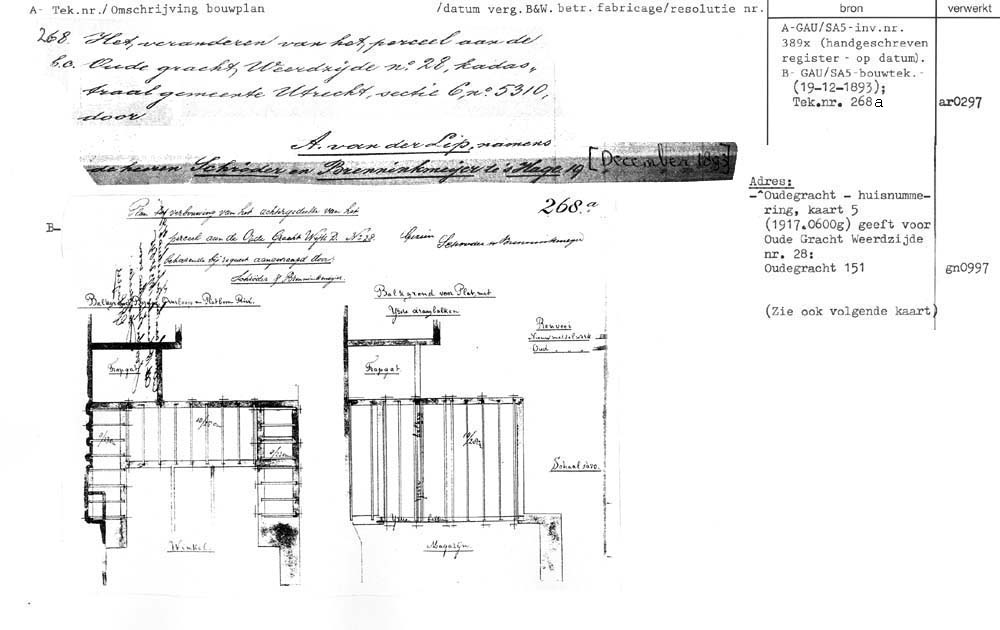 A- Tek.nr./Omschrijving bouwplan /datum verg.B&W. betr. fabricage/resolutie nr. bron verwerkt
268. Het veranderen van het perceel aan de
b.o. Oude gracht, Weerdzijde no. 28, kadas-
traal gemeente Utrecht, sectie C, no. 5310,
door
A. van der Lip, namens
de heeren Schröder en Brenninkmeijer te 's Hage 19 [December 1893]
A-GAU/SA5-inv.nr.
389x (handgeschreven
register - op datum).
B- GAU/SA5-bouwtek.-
(19-12-1893);
Tek.nr. 268a ar0297
Adres:
-^Oudegracht - huisnumme-
ring, kaart 5
(1917.0600g) geeft voor
Oude Gracht Weerdzijde
nr. 28:
Oudegracht 151 gn0997
(Zie ook volgende kaart)
B-
268.a
Plan tot verbouwing van het achtergedeelte van het
perceel aan de Oude Gracht Wijk D. No 28
behoorende bij request aangevraagd door
Schröder & Brenninkmeijer
Gezien Schröder & Brenninkmeijer
Balkgrond voor Plat, met
IJzeren draagbalken
Trapgat
Trapgat
Renvooi
Nieuw metselwerk
Oud
10/20
Schaal 1a50.
Winkel.
Magazijn.